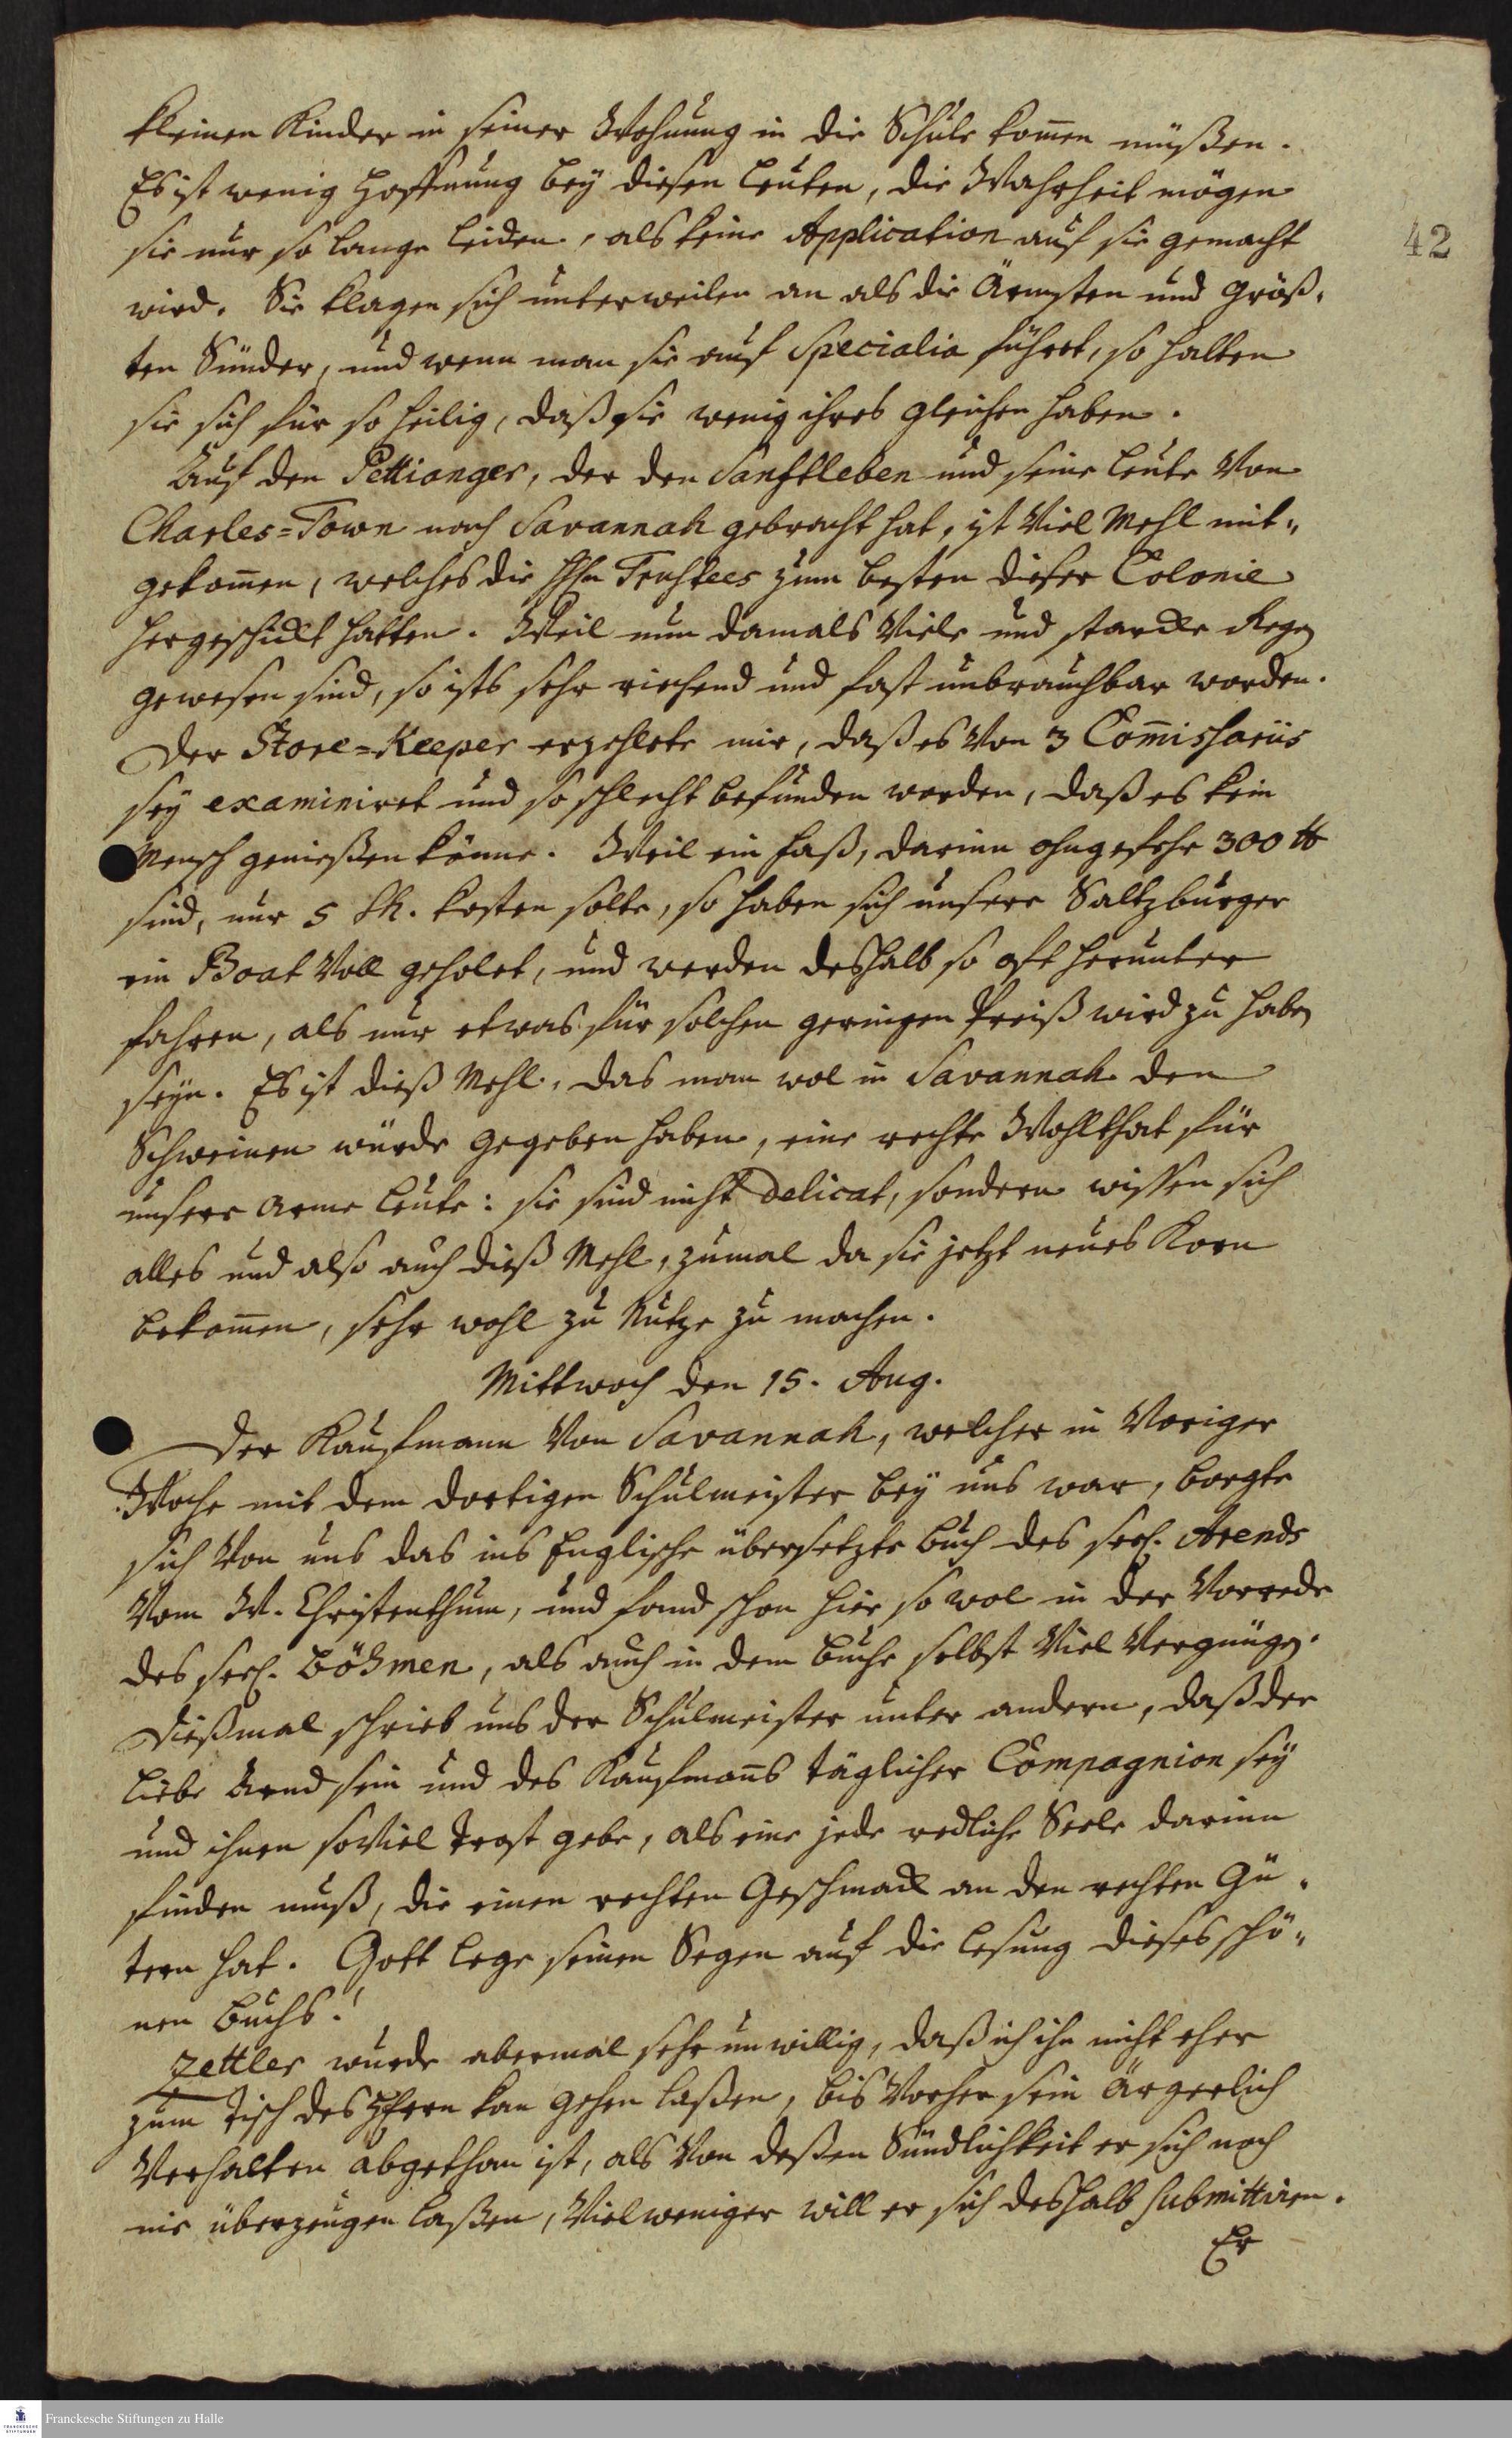 kleinen Kinder in seiner Wohnung in die Schule kom̄en müßen.
Es ist wenig Hoffnung bey diesen Leuten, die Wahrheit mögen
sie nur so lange leiden, als keine Application auf sie gemacht
42
wird. Sie klagen sich unterweilen an als die Ärmsten und Größ-
ten Sünder, und wenn man sie auf Specialia führet, so halten
sie sich für so heilig, daß sie wenig ihres gleichen haben.
Auf den Pettianger, der den Sanftleben und seine Leute von
Charles=Town nach Savannah gebracht hat, ist viel Mehl mit-
gekom̄en, welches die HHn Trustees zum besten dieser Colonie
hergeschickt hatten. Weil nun damals viele und starcke Regen
gewesen sind, so ists sehr riechend und fast unbrauchbar worden.
Der Store=Keeper erzehlete mir, daß es von 3 Com̄issariis
sey examiniret und so schlecht befunden worden, daß es kein
Mensch genießen könne. Weil ein Faß, darinn ohngefehr 300 ℔
sind, nur 5 Sh. kosten solte, so haben sich unsere Saltzburger
ein Boat voll geholet, und werden deshalb so oft herunter
fahren, als nur etwas für solchen geringen Preiß wird zu haben
seyn. Es ist dieß Mehl, das man wol in Savannah den
Schweinen würde gegeben haben, eine rechte Wohlthat für
unsere arme Leute: sie sind nicht delicat, sondern wissen sich
alles und also auch dieß Mehl, zumal da sie jetzt neues Korn
bekom̄en, sehr wohl zu Nutze zu machen.
Mittwoch den 15. Aug.
Der Kaufmann von Savannah, welcher in voriger
Woche mit dem dortigen Schulmeister bey uns war, borgte
sich von uns das ins Englische übersetzte Buch des seel. Arends
vom W. Christenthum, und fand schon hier so wol in der Vorrede
des seel. Böhmen, als auch in dem Buche selbst viel Vergnügen.
Dießmal schrieb uns der Schulmeister unter andern, daß der
liebe Arnd sein und des Kaufman̄s täglicher Compagnion sey
und ihnen so viel Trost gebe, als eine jede redliche Seele darinn
finden muß, die einen rechten Geschmack an den rechten Gü-
tern hat. Gott lege seinen Segen auf die Lesung dieses schö-
nen Buchs!
Zettler wurde abermal sehr unwillig, daß ich ihn nicht eher
zum Tisch des HErrn kan gehen laßen, bis vorher sein ärgerlich
Verhalten abgethan ist, als von deßen Sündlichkeit er sich noch
nie überzeugen laßen, vielweniger will er sich deshalb submittiren.
Er
Franckesche Stiftungen zu Halle